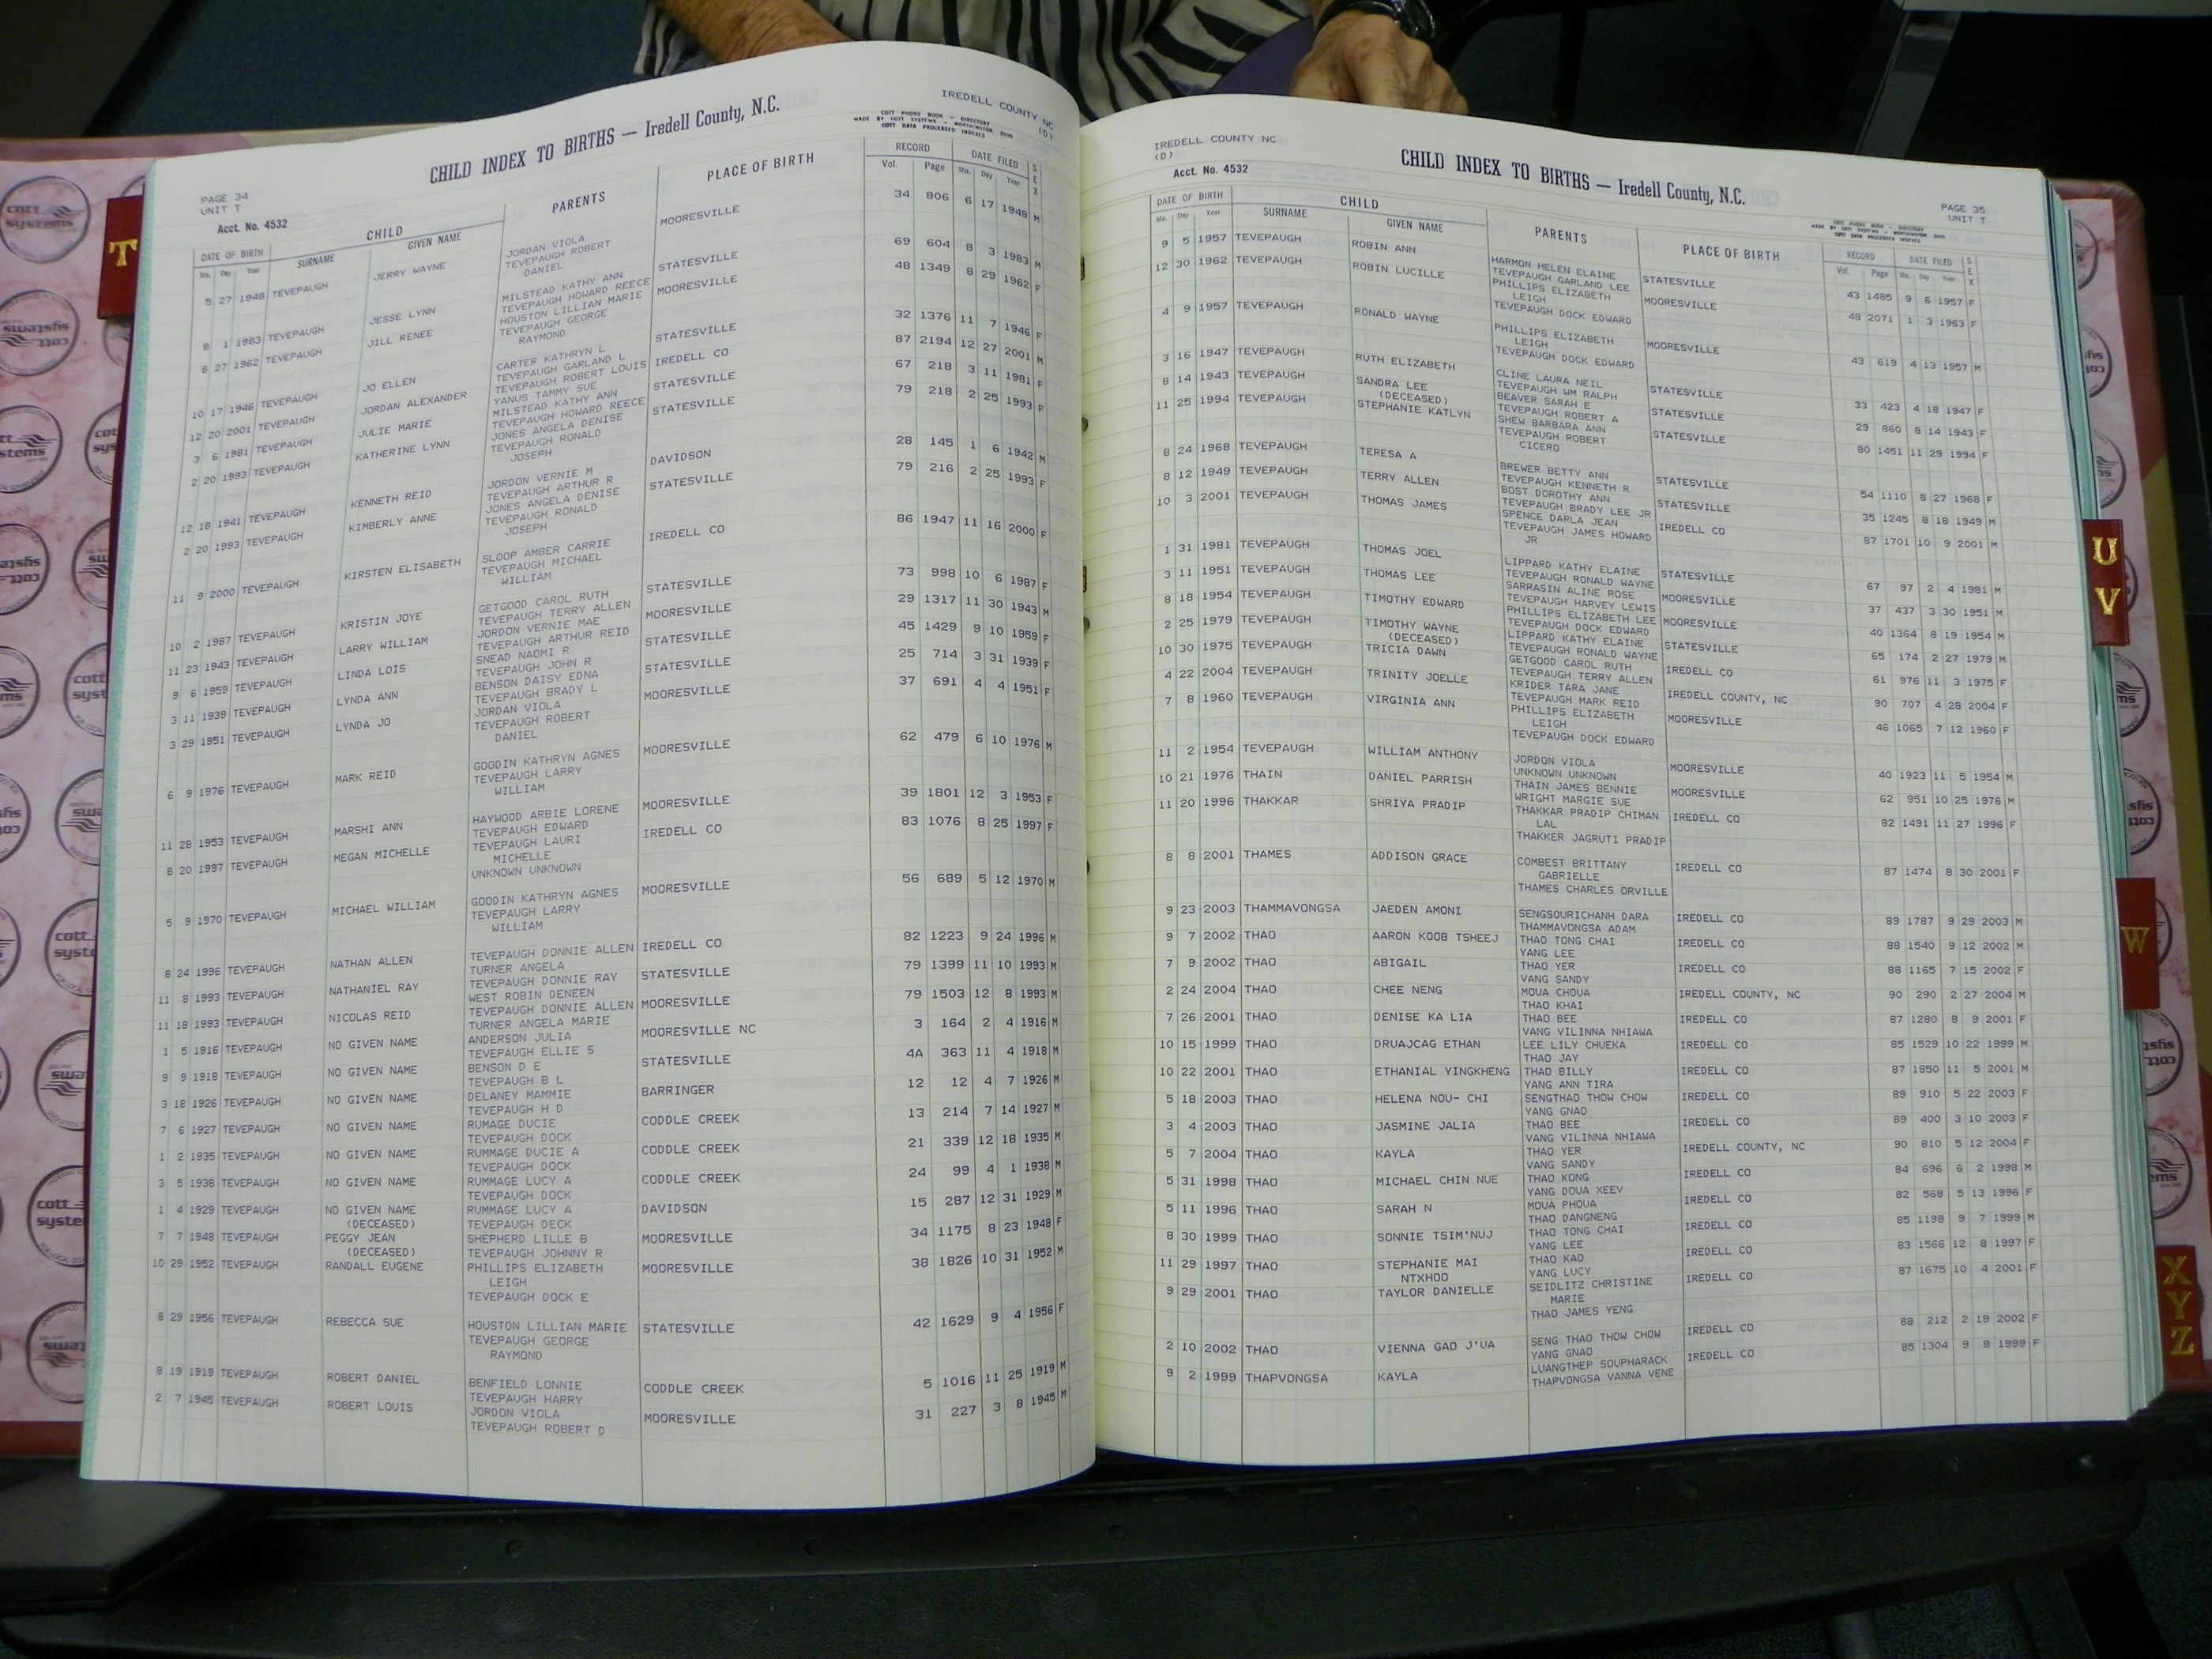 IREDELL COUNTY NC
(D)
COTT PHONE BOOK — DIRECTORY
MADE BY COTT SYSTEMS — WORTHINGTON, OHIO
COTT DATA PROCESSED INDEXES
CHILD INDEX TO BIRTHS — Iredell County, N.C.
PAGE 34
UNIT T
Acct. No. 4532
DATE OF BIRTH CHILD PARENTS PLACE OF BIRTH RECORD DATE FILED SEX
Mo. Day Year SURNAME GIVEN NAME Vol. Page Mo. Day Year
5 27 1948 TEVEPAUGH JERRY WAYNE JORDAN VIOLA MOORESVILLE 34 806 6 17 1948 M
TEVEPAUGH ROBERT
DANIEL
8 1 1983 TEVEPAUGH JESSE LYNN MILSTEAD KATHY ANN STATESVILLE 69 604 8 3 1983 M
TEVEPAUGH HOWARD REECE
8 27 1962 TEVEPAUGH JILL RENEE HOUSTON LILLIAN MARIE MOORESVILLE 48 1349 8 29 1962 F
TEVEPAUGH GEORGE
RAYMOND
10 17 1946 TEVEPAUGH JO ELLEN CARTER KATHRYN L STATESVILLE 32 1376 11 7 1946 F
TEVEPAUGH GARLAND L
12 20 2001 TEVEPAUGH JORDAN ALEXANDER TEVEPAUGH ROBERT LOUIS IREDELL CO 87 2194 12 27 2001 M
YANUS TAMMY SUE
3 6 1981 TEVEPAUGH JULIE MARIE MILSTEAD KATHY ANN STATESVILLE 67 218 3 11 1981 F
TEVEPAUGH HOWARD REECE
2 20 1993 TEVEPAUGH KATHERINE LYNN JONES ANGELA DENISE STATESVILLE 79 218 2 25 1993 F
TEVEPAUGH RONALD
JOSEPH
12 18 1941 TEVEPAUGH KENNETH REID JORDON VERNIE M DAVIDSON 28 145 1 6 1942 M
TEVEPAUGH ARTHUR R
2 20 1993 TEVEPAUGH KIMBERLY ANNE JONES ANGELA DENISE STATESVILLE 79 216 2 25 1993 F
TEVEPAUGH RONALD
JOSEPH
11 9 2000 TEVEPAUGH KIRSTEN ELISABETH SLOOP AMBER CARRIE IREDELL CO 86 1947 11 16 2000 F
TEVEPAUGH MICHAEL
WILLIAM
10 2 1987 TEVEPAUGH KRISTIN JOYE GETGOOD CAROL RUTH STATESVILLE 73 998 10 6 1987 F
TEVEPAUGH TERRY ALLEN
11 23 1943 TEVEPAUGH LARRY WILLIAM JORDON VERNIE MAE MOORESVILLE 29 1317 11 30 1943 M
TEVEPAUGH ARTHUR REID
9 6 1959 TEVEPAUGH LINDA LOIS SNEAD NAOMI R STATESVILLE 45 1429 9 10 1959 F
TEVEPAUGH JOHN R
3 11 1939 TEVEPAUGH LYNDA ANN BENSON DAISY EDNA STATESVILLE 25 714 3 31 1939 F
TEVEPAUGH BRADY L
3 29 1951 TEVEPAUGH LYNDA JO JORDAN VIOLA MOORESVILLE 37 691 4 4 1951 F
TEVEPAUGH ROBERT
DANIEL
6 9 1976 TEVEPAUGH MARK REID GOODIN KATHRYN AGNES MOORESVILLE 62 479 6 10 1976 M
TEVEPAUGH LARRY
WILLIAM
11 28 1953 TEVEPAUGH MARSHI ANN HAYWOOD ARBIE LORENE MOORESVILLE 39 1801 12 3 1953 F
TEVEPAUGH EDWARD
8 20 1997 TEVEPAUGH MEGAN MICHELLE TEVEPAUGH LAURI IREDELL CO 83 1076 8 25 1997 F
MICHELLE
UNKNOWN UNKNOWN
5 9 1970 TEVEPAUGH MICHAEL WILLIAM GOODIN KATHRYN AGNES MOORESVILLE 56 689 5 12 1970 M
TEVEPAUGH LARRY
WILLIAM
8 24 1996 TEVEPAUGH NATHAN ALLEN TEVEPAUGH DONNIE ALLEN IREDELL CO 82 1223 9 24 1996 M
TURNER ANGELA
11 8 1993 TEVEPAUGH NATHANIEL RAY TEVEPAUGH DONNIE RAY STATESVILLE 79 1399 11 10 1993 M
WEST ROBIN DENEEN
11 18 1993 TEVEPAUGH NICOLAS REID TEVEPAUGH DONNIE ALLEN MOORESVILLE 79 1503 12 8 1993 M
TURNER ANGELA MARIE
1 5 1916 TEVEPAUGH NO GIVEN NAME ANDERSON JULIA MOORESVILLE NC 3 164 2 4 1916 M
TEVEPAUGH ELLIE S
9 9 1918 TEVEPAUGH NO GIVEN NAME BENSON D E STATESVILLE 4A 363 11 4 1918 M
TEVEPAUGH B L
3 18 1926 TEVEPAUGH NO GIVEN NAME DELANEY MAMMIE BARRINGER 12 12 4 7 1926 M
TEVEPAUGH H D
7 6 1927 TEVEPAUGH NO GIVEN NAME RUMAGE DUCIE CODDLE CREEK 13 214 7 14 1927 M
TEVEPAUGH DOCK
1 2 1935 TEVEPAUGH NO GIVEN NAME RUMMAGE DUCIE A CODDLE CREEK 21 339 12 18 1935 M
TEVEPAUGH DOCK
3 5 1938 TEVEPAUGH NO GIVEN NAME RUMMAGE LUCY A CODDLE CREEK 24 99 4 1 1938 M
TEVEPAUGH DOCK
1 4 1929 TEVEPAUGH NO GIVEN NAME RUMMAGE LUCY A DAVIDSON 15 287 12 31 1929 M
(DECEASED) TEVEPAUGH DECK
7 7 1948 TEVEPAUGH PEGGY JEAN SHEPHERD LILLE B MOORESVILLE 34 1175 8 23 1948 F
(DECEASED) TEVEPAUGH JOHNNY R
10 29 1952 TEVEPAUGH RANDALL EUGENE PHILLIPS ELIZABETH MOORESVILLE 38 1826 10 31 1952 M
LEIGH
TEVEPAUGH DOCK E
8 29 1956 TEVEPAUGH REBECCA SUE HOUSTON LILLIAN MARIE STATESVILLE 42 1629 9 4 1956 F
TEVEPAUGH GEORGE
RAYMOND
8 19 1919 TEVEPAUGH ROBERT DANIEL BENFIELD LONNIE CODDLE CREEK 5 1016 11 25 1919 M
TEVEPAUGH HARRY
2 7 1945 TEVEPAUGH ROBERT LOUIS JORDON VIOLA MOORESVILLE 31 227 3 8 1945 M
TEVEPAUGH ROBERT D
IREDELL COUNTY NC
(D)
Acct. No. 4532
CHILD INDEX TO BIRTHS — Iredell County, N.C.
PAGE 35
UNIT T
COTT PHONE BOOK — DIRECTORY
MADE BY COTT SYSTEMS — WORTHINGTON, OHIO
COTT DATA PROCESSED INDEXES
DATE OF BIRTH CHILD PARENTS PLACE OF BIRTH RECORD DATE FILED SEX
Mo. Day Year SURNAME GIVEN NAME Vol. Page Mo. Day Year
9 5 1957 TEVEPAUGH ROBIN ANN HARMON HELEN ELAINE STATESVILLE 43 1485 9 6 1957 F
TEVEPAUGH GARLAND LEE
12 30 1962 TEVEPAUGH ROBIN LUCILLE PHILLIPS ELIZABETH MOORESVILLE 48 2071 1 3 1963 F
LEIGH
TEVEPAUGH DOCK EDWARD
4 9 1957 TEVEPAUGH RONALD WAYNE PHILLIPS ELIZABETH MOORESVILLE 43 619 4 13 1957 M
LEIGH
TEVEPAUGH DOCK EDWARD
3 16 1947 TEVEPAUGH RUTH ELIZABETH CLINE LAURA NEIL STATESVILLE 33 423 4 18 1947 F
TEVEPAUGH WM RALPH
8 14 1943 TEVEPAUGH SANDRA LEE BEAVER SARAH E STATESVILLE 29 860 8 14 1943 F
(DECEASED) TEVEPAUGH ROBERT A
11 25 1994 TEVEPAUGH STEPHANIE KATLYN SHEW BARBARA ANN STATESVILLE 80 1451 11 29 1994 F
TEVEPAUGH ROBERT
CICERO
8 24 1968 TEVEPAUGH TERESA A BREWER BETTY ANN STATESVILLE 54 1110 8 27 1968 F
TEVEPAUGH KENNETH R
8 12 1949 TEVEPAUGH TERRY ALLEN BOST DOROTHY ANN STATESVILLE 35 1245 8 18 1949 M
TEVEPAUGH BRADY LEE JR
10 3 2001 TEVEPAUGH THOMAS JAMES SPENCE DARLA JEAN IREDELL CO 87 1701 10 9 2001 M
TEVEPAUGH JAMES HOWARD
JR
1 31 1981 TEVEPAUGH THOMAS JOEL LIPPARD KATHY ELAINE STATESVILLE 67 97 2 4 1981 M
TEVEPAUGH RONALD WAYNE
3 11 1951 TEVEPAUGH THOMAS LEE SARRASIN ALINE ROSE MOORESVILLE 37 437 3 30 1951 M
TEVEPAUGH HARVEY LEWIS
8 18 1954 TEVEPAUGH TIMOTHY EDWARD PHILLIPS ELIZABETH LEE MOORESVILLE 40 1364 8 19 1954 M
TEVEPAUGH DOCK EDWARD
2 25 1979 TEVEPAUGH TIMOTHY WAYNE LIPPARD KATHY ELAINE STATESVILLE 65 174 2 27 1979 M
(DECEASED) TEVEPAUGH RONALD WAYNE
10 30 1975 TEVEPAUGH TRICIA DAWN GETGOOD CAROL RUTH IREDELL CO 61 976 11 3 1975 F
TEVEPAUGH TERRY ALLEN
4 22 2004 TEVEPAUGH TRINITY JOELLE KRIDER TARA JANE IREDELL COUNTY, NC 90 707 4 28 2004 F
TEVEPAUGH MARK REID
7 8 1960 TEVEPAUGH VIRGINIA ANN PHILLIPS ELIZABETH MOORESVILLE 46 1065 7 12 1960 F
LEIGH
TEVEPAUGH DOCK EDWARD
11 2 1954 TEVEPAUGH WILLIAM ANTHONY JORDON VIOLA MOORESVILLE 40 1923 11 5 1954 M
UNKNOWN UNKNOWN
10 21 1976 THAIN DANIEL PARRISH THAIN JAMES BENNIE MOORESVILLE 62 951 10 25 1976 M
WRIGHT MARGIE SUE
11 20 1996 THAKKAR SHRIYA PRADIP THAKKAR PRADIP CHIMAN IREDELL CO 82 1491 11 27 1996 F
LAL
THAKKER JAGRUTI PRADIP
8 8 2001 THAMES ADDISON GRACE COMBEST BRITTANY IREDELL CO 87 1474 8 30 2001 F
GABRIELLE
THAMES CHARLES ORVILLE
9 23 2003 THAMMAVONGSA JAEDEN AMONI SENGSOURICHANH DARA IREDELL CO 89 1787 9 29 2003 M
THAMMAVONGSA ADAM
9 7 2002 THAO AARON KOOB TSHEEJ THAO TONG CHAI IREDELL CO 88 1540 9 12 2002 M
YANG LEE
7 9 2002 THAO ABIGAIL THAO YER IREDELL CO 88 1165 7 15 2002 F
VANG SANDY
2 24 2004 THAO CHEE NENG MOUA CHOUA IREDELL COUNTY, NC 90 290 2 27 2004 M
THAO KHAI
7 26 2001 THAO DENISE KA LIA THAO BEE IREDELL CO 87 1280 8 9 2001 F
VANG VILINNA NHIAWA
10 15 1999 THAO DRUAJCAG ETHAN LEE LILY CHUEKA IREDELL CO 85 1529 10 22 1999 M
THAO JAY
10 22 2001 THAO ETHANIAL YINGKHENG THAO BILLY IREDELL CO 87 1850 11 5 2001 M
YANG ANN TIRA
5 18 2003 THAO HELENA NOU- CHI SENGTHAO THOW CHOW IREDELL CO 89 910 5 22 2003 F
YANG GNAO
3 4 2003 THAO JASMINE JALIA THAO BEE IREDELL CO 89 400 3 10 2003 F
VANG VILINNA NHIAWA
5 7 2004 THAO KAYLA THAO YER IREDELL COUNTY, NC 90 810 5 12 2004 F
VANG SANDY
5 31 1998 THAO MICHAEL CHIN NUE THAO KONG IREDELL CO 84 696 6 2 1998 M
YANG DOUA XEEV
5 11 1996 THAO SARAH N MOUA PHOUA IREDELL CO 82 568 5 13 1996 F
THAO DANGNENG
8 30 1999 THAO SONNIE TSIM'NUJ THAO TONG CHAI IREDELL CO 85 1198 9 7 1999 M
YANG LEE
11 29 1997 THAO STEPHANIE MAI THAO KAO IREDELL CO 83 1566 12 8 1997 F
NTXHOO YANG LUCY
9 29 2001 THAO TAYLOR DANIELLE SEIDLITZ CHRISTINE IREDELL CO 87 1675 10 4 2001 F
MARIE
THAO JAMES YENG
2 10 2002 THAO VIENNA GAO J'UA SENG THAO THOW CHOW IREDELL CO 88 212 2 19 2002 F
YANG GNAO
9 2 1999 THAPVONGSA KAYLA LUANGTHEP SOUPHARACK IREDELL CO 85 1304 9 8 1999 F
THAPVONGSA VANNA VENE
T
U
V
W
X
Y
Z
cott
systems